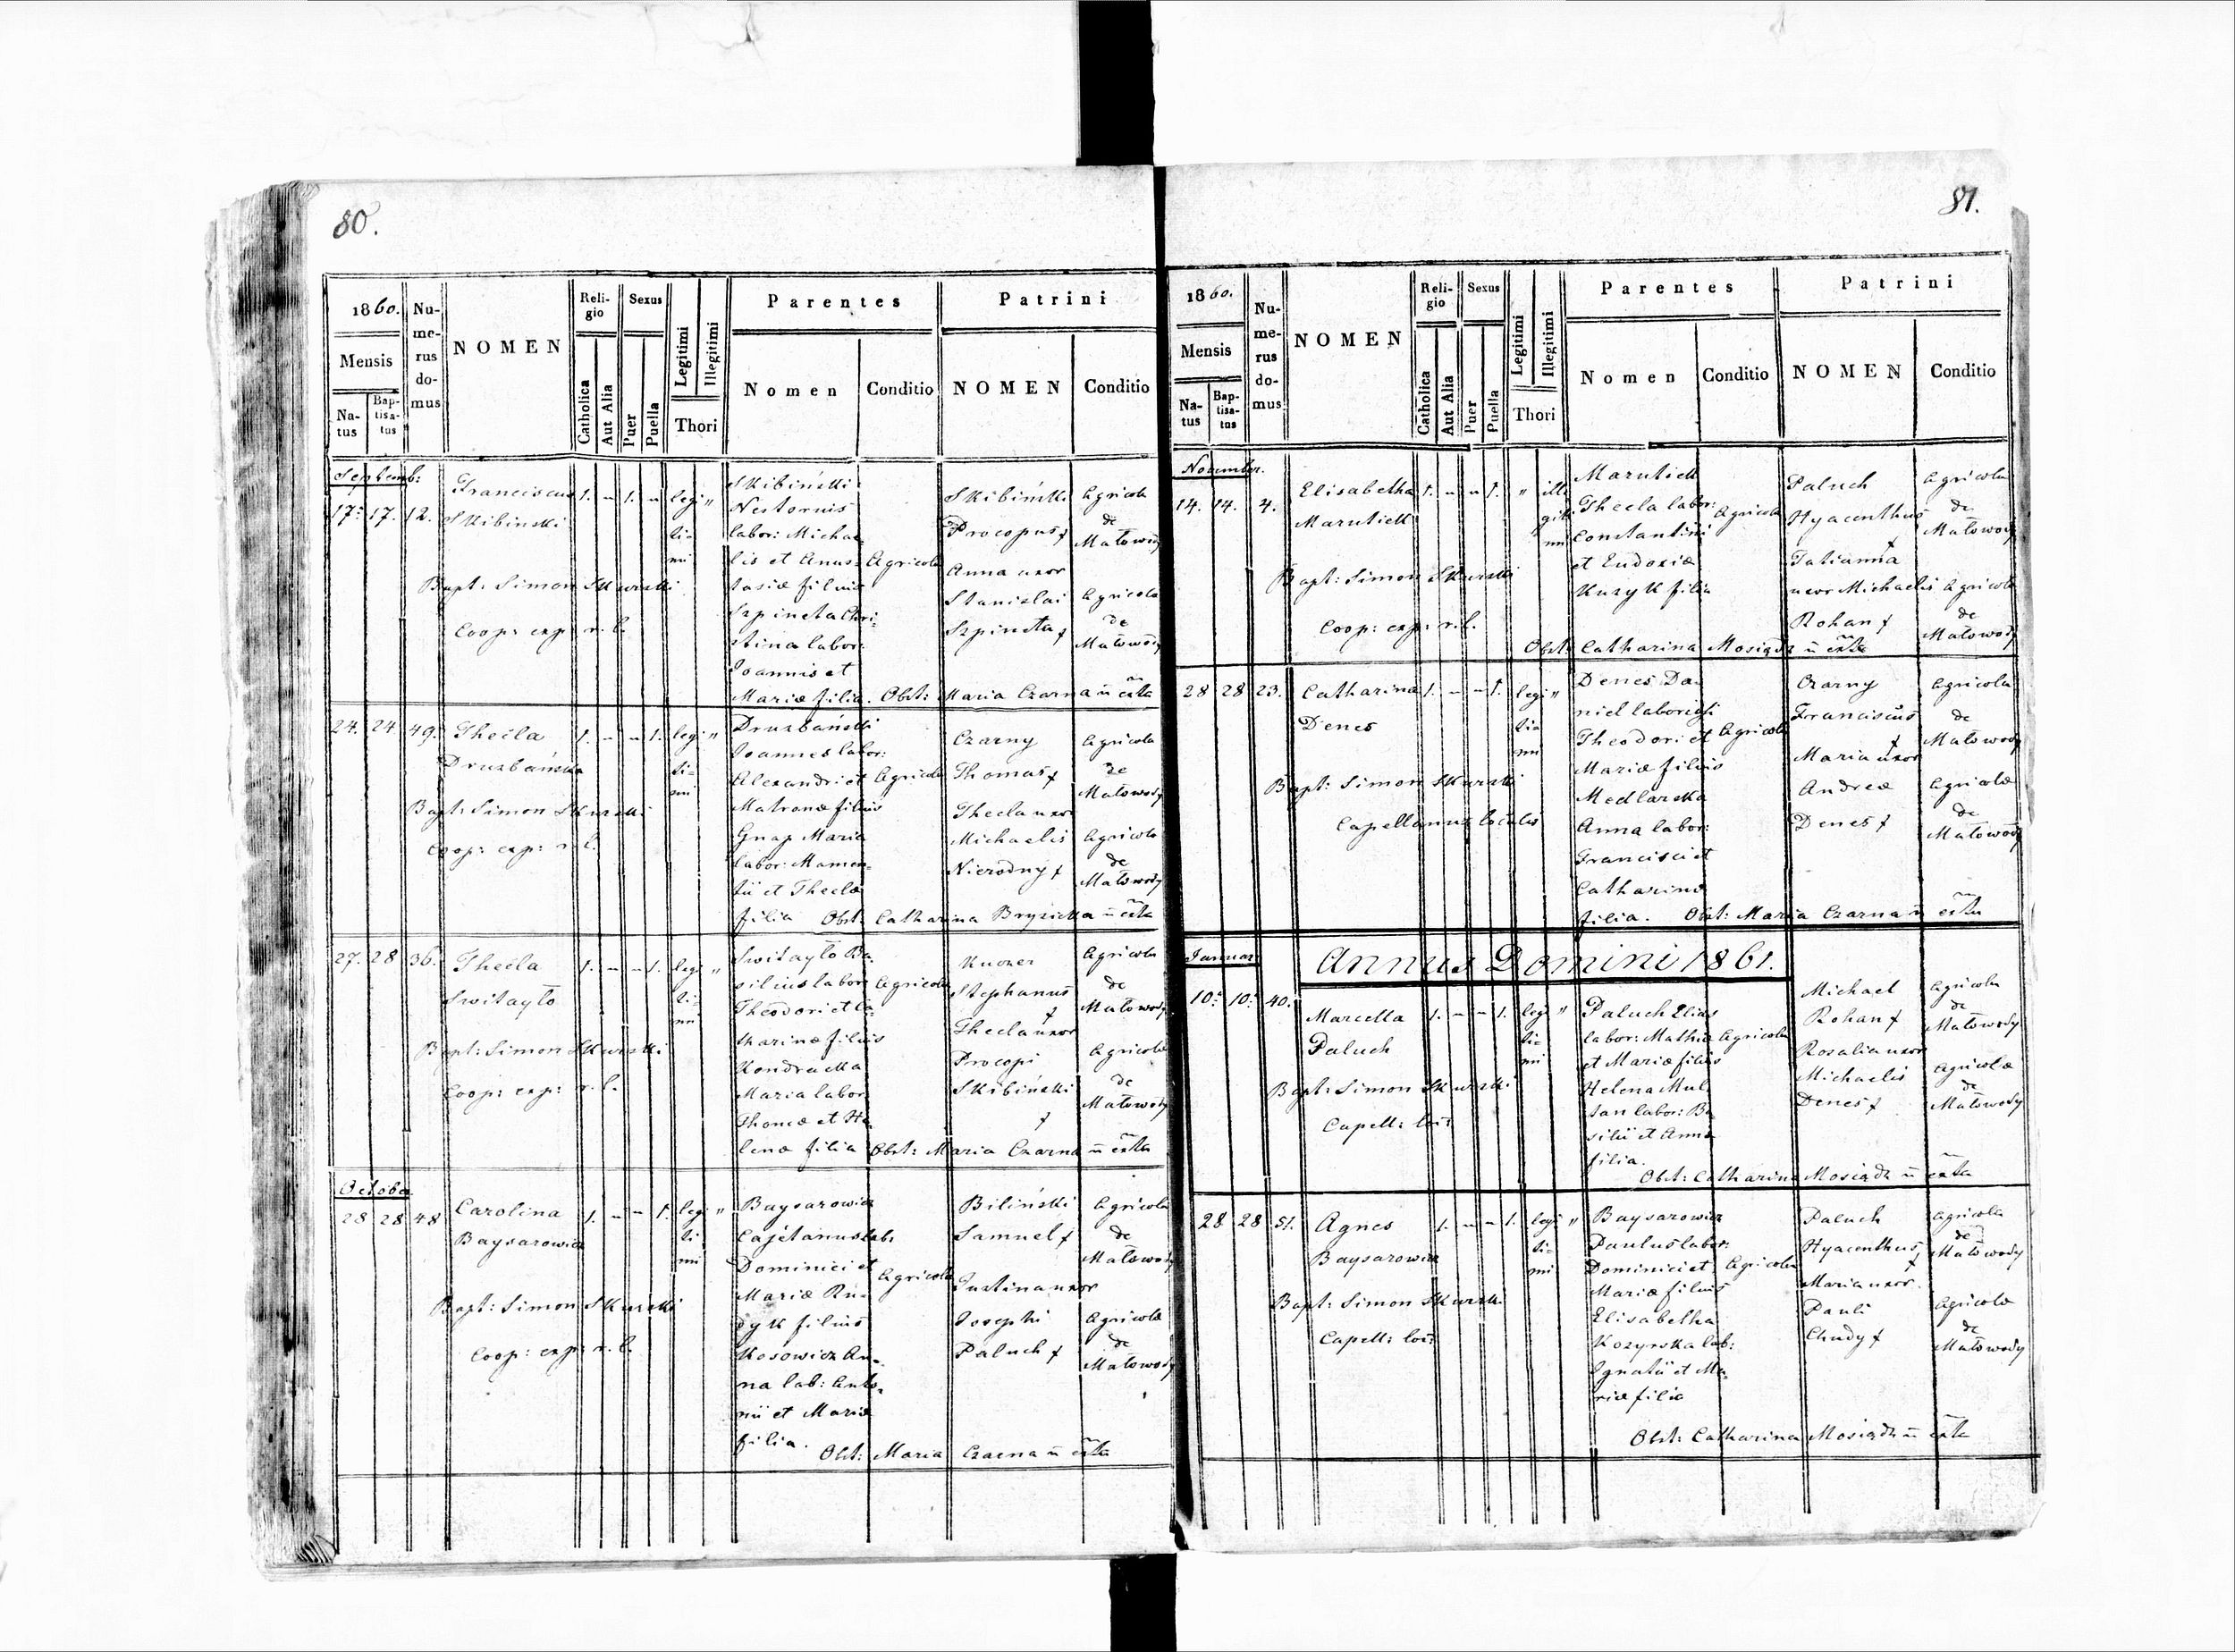 80.
1860.
Mensis
Na-
tus
Bap-
tisa-
tus
Nu-
me-
rus
do-
mus
NOMEN
Reli-
gio
Catholica
Aut Alia
Sexus
Puer
Puella
Legitimi
Illegitimi
Thori
Parentes
Nomen
Conditio
Patrini
NOMEN
Conditio
Septemb:
17: 17. 12.
Franciscus
Skibinski
1. - 1. -
legi "
ti=
mi
Bapt: Simon Skurski
Coop: exp: r. l.
Skibiński
Nestorius
labor: Michae
lis et Anas=
tasiæ filius
Szpineta Chri:
stina labor:
Joannis et
Mariæ filia.
Agricola
Skibiński
Procopus ɟ
Anna uxor
Stanislai
Szpineta ɟ
Agricola
de
Małowody
Agricola
de
Małowody
Obst: Maria Czarna ñ exta
24. 24 49.
Thecla
Druzbańska
1. - - 1.
legi "
ti=
mi
Bapt: Simon Skurski
Coop: exp: r. l.
Druzbański
Joannes labor:
Alexandri et
Matronæ filius
Gnap Maria
labor: Mamen=
tii et Theclæ
filia
Agricola
Czarny
Thomas ɟ
Thecla uxor
Michaelis
Nierodny ɟ
Agricola
de
Małowody
Agricola
de
Małowody
Obst: Catharina Bryzicka ñ exta
27. 28 36.
Thecla
Switayło
1. - - 1.
legi "
ti=
mi
Bapt: Simon Skurski
Coop: exp: r. l.
Switayło Ba
silius labor
Theodori et Ca=
tharinæ filius
Kondracka
Maria labor
Thomæ et He
lenæ filia
Agricola
Stephanus
Thecla uxor
Procopi
Skibiński
ɟ
Agricola
de
Małowody
Agricola
de
Małowody
Obst: Maria Czarna ñ exta
October
28 28 48
Carolina
Baysarowicz
1. - - 1.
legi "
ti=
mi
Bapt: Simon Skurski
Coop: exp: r. l.
Baysarowicz
Cajetanus lab:
Dominici et
Mariæ Ru=
dyk filius
Kosowicz An=
na lab: Anto=
nii et Mariæ
filia.
Agricola
Biliński
Samuel ɟ
Justina uxor
Josephi
Paluch ɟ
Agricola
de
Małowody
Agricola
de
Małowody
Obst: Maria Czarna ñ exta
81.
1860.
Mensis
Na-
tus
Bap-
tisa-
tus
Nu-
me-
rus
do-
mus
NOMEN
Reli-
gio
Catholica
Aut Alia
Sexus
Puer
Puella
Legitimi
Illegitimi
Thori
Parentes
Nomen
Conditio
Patrini
NOMEN
Conditio
November.
14. 14. 4.
Elisabetha
Marutiek
1. - - 1.
" ille
giti
mi
Bapt: Simon Skurski
Coop: exp: r. l.
Marutiek
Thecla labor:
Constantini
et Eudoxiæ
Kuzyk filia
Agricola
Paluch
Hyacinthus
ɟ
Tatianna
uxor Michaelis
Rohan ɟ
Agricola
de
Małowody
Agricola
de
Małowody
Obst: Catharina Mosiądz ñ exta
28 28 23.
Catharina
Denes
1. - - 1.
legi "
ti=
mi
Bapt: Simon Skurski
Capellanus localis
Denes Da=
niel laborigsi
Theodori et
Mariæ filius
Medlarska
Anna labor:
Francisci et
Catharinæ
filia.
Agricola
Czarny
Franciscus
ɟ
Maria uxor
Andreæ
Denes ɟ
Agricola
de
Małowody
Agricolæ
de
Małowody
Obst: Maria Czarna ñ exta
Annus Domini 1861.
Januar
10: 10: 40.
Marcella
Paluch
1. - - 1.
legi "
ti=
mi
Bapt: Simon Skurski
Capell: loc:
Paluch Elias
labor: Mathiæ
et Mariæ filius
Helena Mul
san labor: Ba
silii et Annæ
filia.
Agricola
Michael
Rohan ɟ
Rosalia uxor
Michaelis
Denes ɟ
Agricola
de
Małowody
Agricolæ
de
Małowody
Obst: Catharina Mosiądz ñ exta
28 28 51.
Agnes
Baysarowicz
1. - - 1.
legi "
ti=
mi
Bapt: Simon Skurski
Capell: loc:
Baysarowicz
Paulus labor:
Dominici et
Mariæ filius
Elisabetha
Kozyrska lab:
Ignatii et Ma=
riæ filia
Agricola
Paluch
Hyacinthus ɟ
Maria uxor
Pauli
Chudy ɟ
Agricola
de
Małowody
Agricola
de
Małowody
Obst: Catharina Mosiądz ñ exta